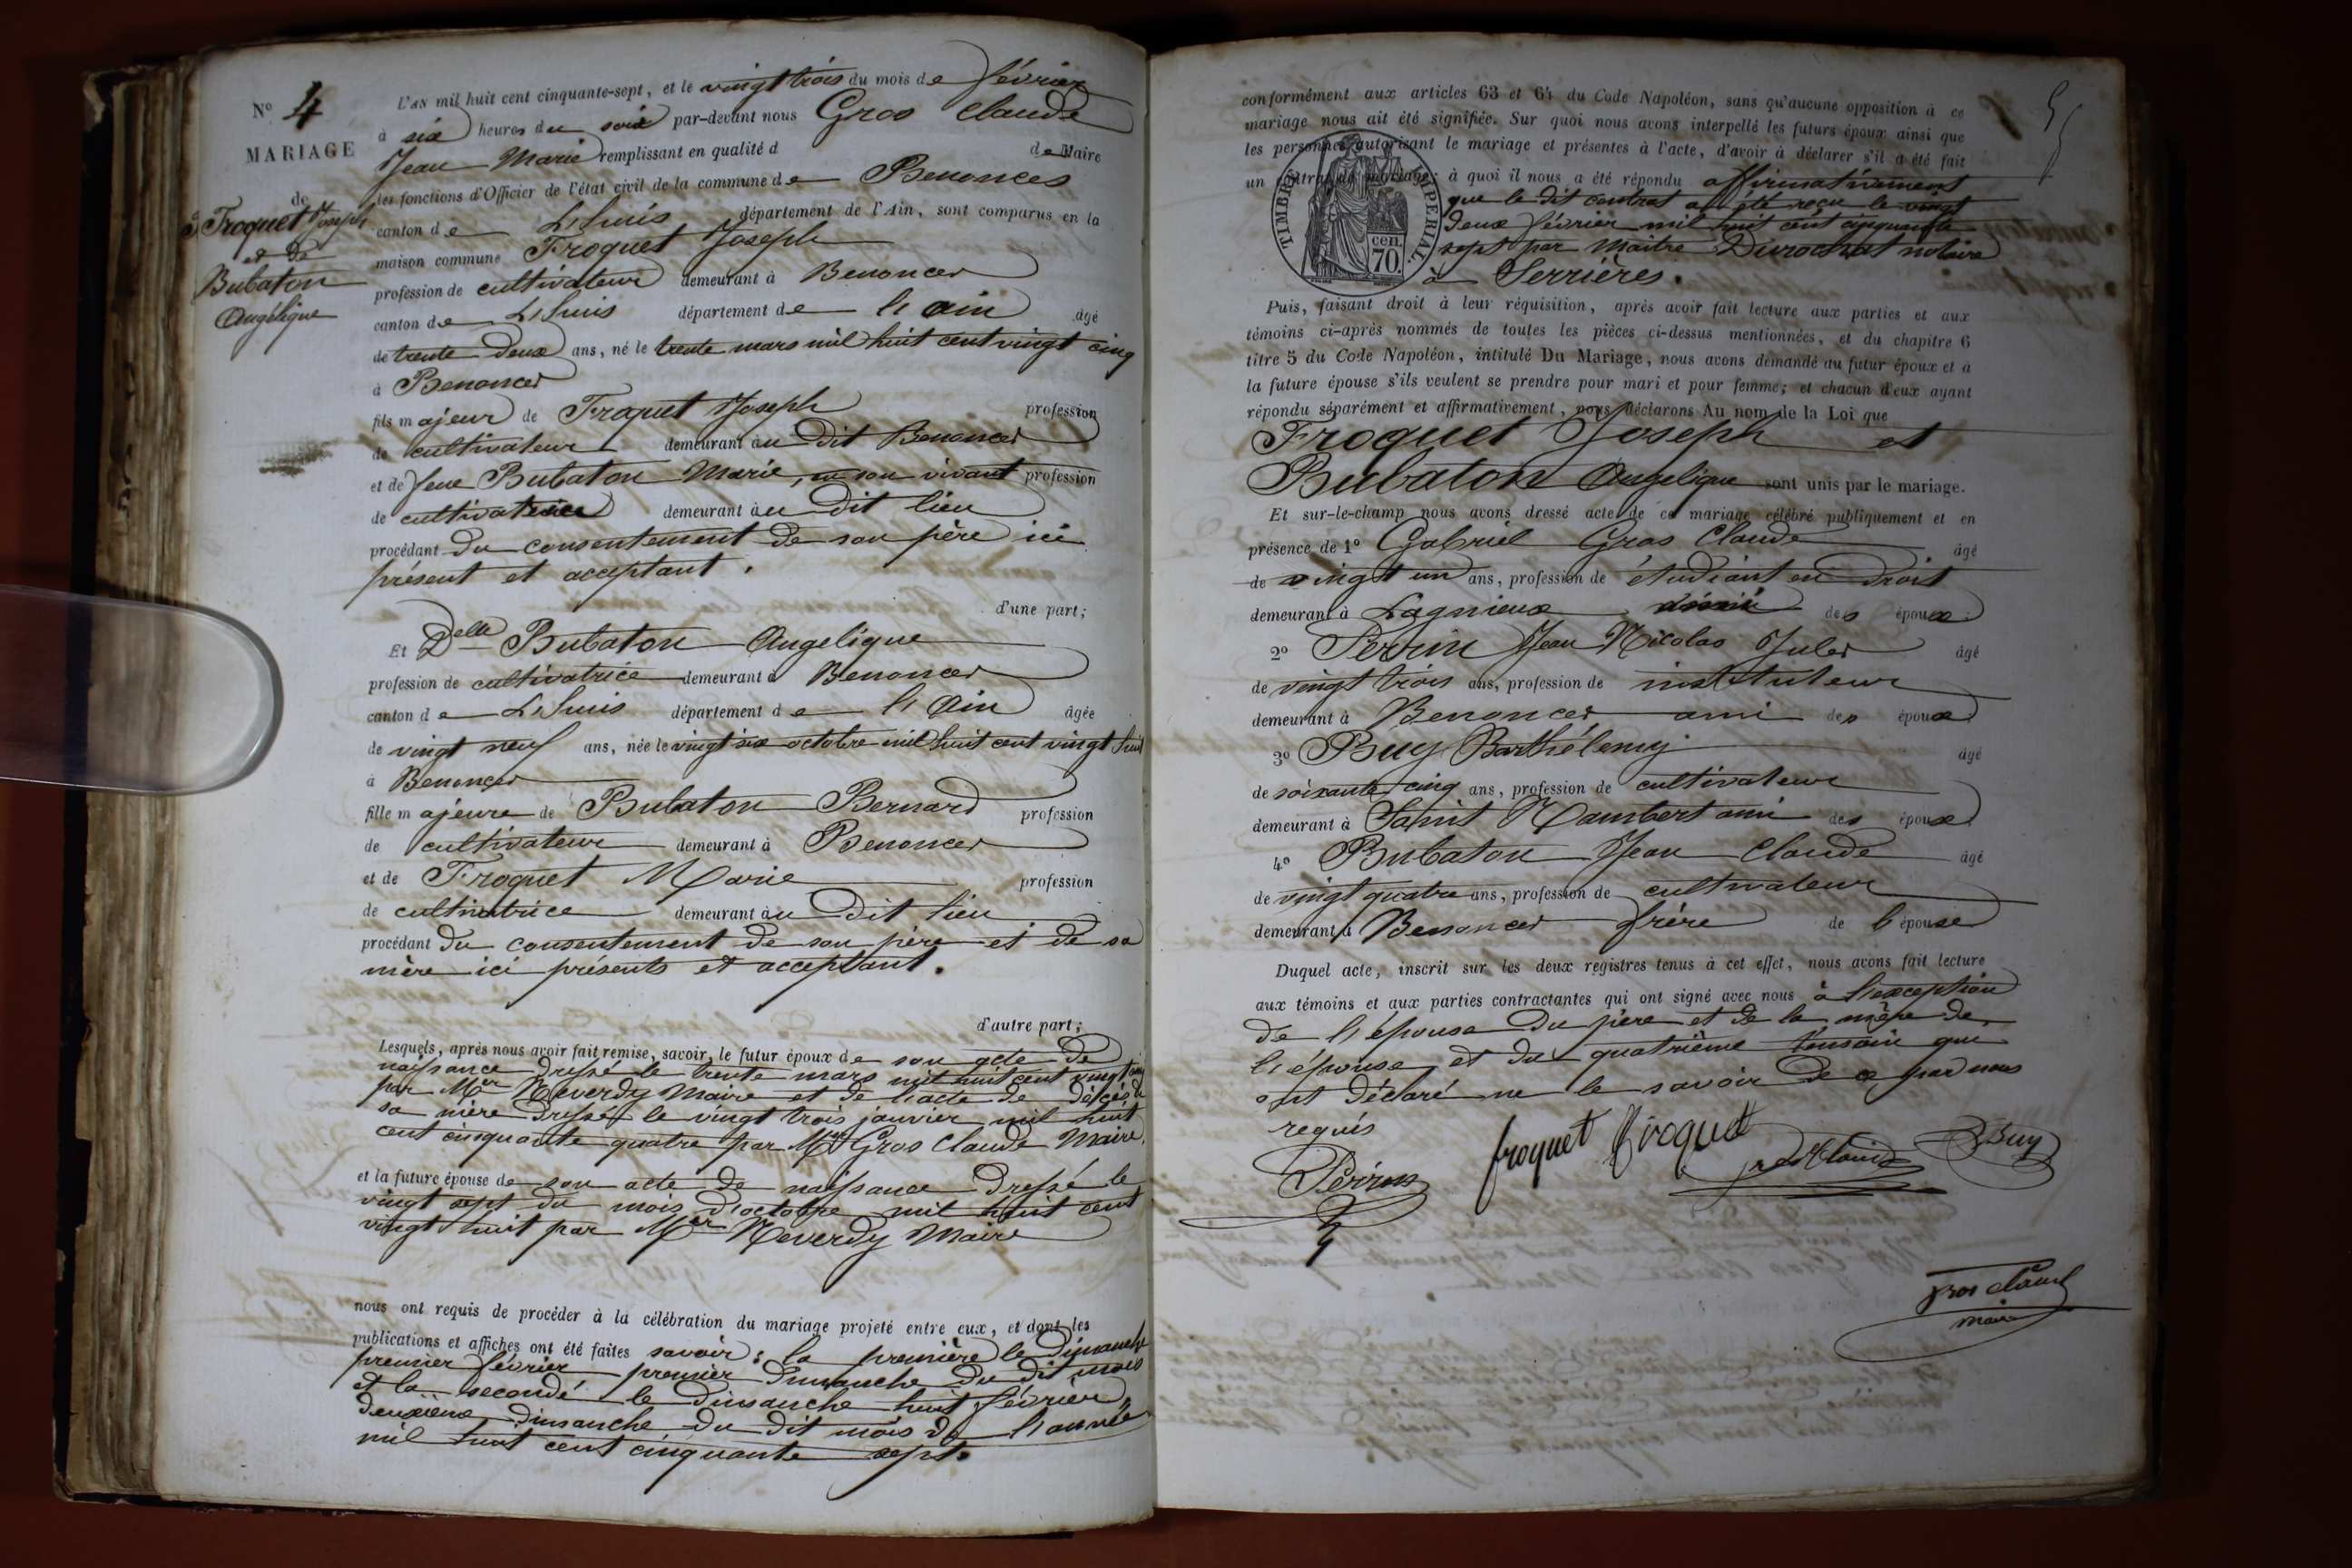 N° 4
MARIAGE
de
Froquet Joseph
et de
Bubaton
Angélique
L'AN mil huit cent cinquante-sept, et le vingt trois du mois de février
à six heures du soir par-devant nous Gros Claude
Jean Marie remplissant en qualité d de Maire
les fonctions d'Officier de l'état civil de la commune de Benonces
canton de Lhuis département de l'Ain, sont comparus en la
maison commune Froquet Joseph
profession de cultivateur demeurant à Benonces
canton de Lhuis département de l'ain âgé
de trente deux ans, né le trente mars mil huit cent vingt cinq
à Benonces
fils majeur de Froquet Joseph profession
de cultivateur demeurant au dit Benonces
et de feue Bubaton Marie, en son vivant profession
de cultivatrice demeurant au dit lieu
procédant du consentement de son père ici
présent et acceptant.
d'une part;
Et Delle Bubaton Angelique
profession de cultivatrice demeurant à Benonces
canton de Lhuis département de l'Ain âgée
de vingt neuf ans, née le vingt six octobre mil huit cent vingt huit
à Benonces
fille majeure de Bubaton Bernard profession
de cultivateur demeurant à Benonces
et de Froquet Marie profession
de cultivatrice demeurant au dit lieu
procédant du consentement de son père et de sa
mère ici présents et acceptant.
d'autre part;
Lesquels, après nous avoir fait remise, savoir, le futur époux de son acte de
naissance dressé le trente mars mil huit cent vingt cinq
par Mer Reverdy Maire et de l'acte de décès de
sa mère dressé le vingt trois janvier mil huit
cent cinquante quatre par Mer Gros Claude Maire.
et la future épouse de son acte de naissance dressé le
vingt sept du mois d'octobre mil huit cent
vingt huit par Mer Reverdy Maire
nous ont requis de procéder à la célébration du mariage projeté entre eux, et dont les
publications et affiches ont été faites savoir : la première le Dimanche
premier février premier Dimanche du dit mois
et la seconde le dimanche huit février
deuxième Dimanche du dit mois de l'année
mil huit cent cinquante sept.
conformément aux articles 63 et 64 du Code Napoléon, sans qu'aucune opposition à ce
mariage nous ait été signifiée. Sur quoi nous avons interpellé les futurs époux ainsi que
les personnes autorisant le mariage et présentes à l'acte, d'avoir à déclarer s'il a été fait
un contrat de mariage; à quoi il nous a été répondu affirmativement
que le dit contrat a été reçu le vingt
deux février mil huit cent cinquante
sept par Maître Durochat notaire
à Serrières.
TIMBRE IMPERIAL
70 cen.
Puis, faisant droit à leur réquisition, après avoir fait lecture aux parties et aux
témoins ci-après nommés de toutes les pièces ci-dessus mentionnées, et du chapitre 6
titre 5 du Code Napoléon, intitulé Du Mariage, nous avons demandé au futur époux et à
la future épouse s'ils veulent se prendre pour mari et pour femme; et chacun d'eux ayant
répondu séparément et affirmativement, nous déclarons Au nom de la Loi que
Froquet Joseph et
Bubaton Angelique sont unis par le mariage.
Et sur-le-champ nous avons dressé acte de ce mariage célébré publiquement et en
présence de 1° Gabriel Gros Claude âgé
de vingt un ans, profession de étudiant en droit
demeurant à Lagnieux des époux
2° Perrin Jean Nicolas Jules âgé
de vingt trois ans, profession de instituteur
demeurant à Benonces ami des époux
3° Buy Barthélemy âgé
de soixante cinq ans, profession de cultivateur
demeurant à Saint Rambert ami des époux
4° Bubaton Jean Claude âgé
de vingt quatre ans, profession de cultivateur
demeurant à Benonces frère de l'épouse
Duquel acte, inscrit sur les deux registres tenus à cet effet, nous avons fait lecture
aux témoins et aux parties contractantes qui ont signé avec nous à l'exception
de l'épouse du père et de la mère de
l'épouse et du quatrième témoin qui
ont déclaré ne le savoir de ce par nous
requis
Perrin froquet froquet gros Claude B Buy
gros claude
maire